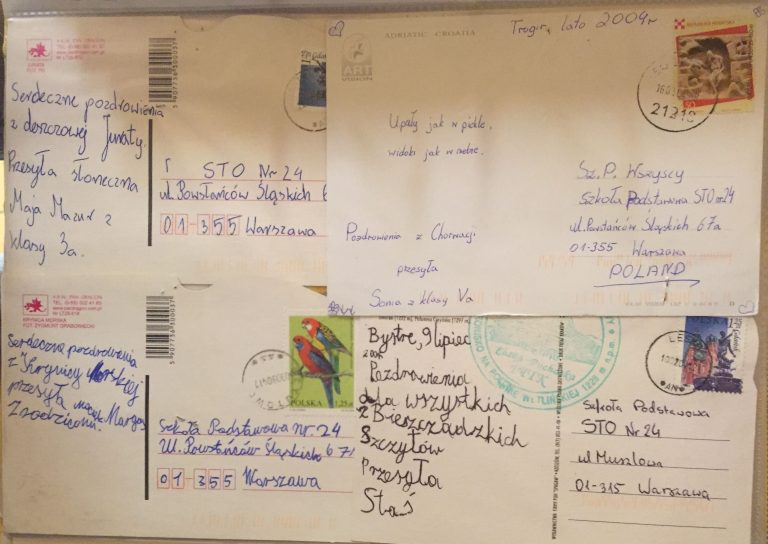 TEL.
JURATA
Serdeczne pozdrowienia
z deszczowej Juraty.
Przesyła słoneczna
Maja Mazur z
klasy 3a.
5907736300037
STO Nr 24
ul. Powstańców Śląskich 6
01-355 Warszawa
ADRIATIC CROATIA
ART
Trogir, lato 2009r
Upały jak w piekle,
widoki jak w niebie.
Pozdrowienia z Chorwacji
przesyła
Sonia z klasy Va
21218
Sz. P. Wszyscy
Szkoła Podstawowa STO nr 24
ul. Powstańców Śląskich 67a
01-355 Warszawa
POLAND
KRYNICA MORSKA
FOT. ZYGMUNT GRABOWIECKI
Serdeczne pozdrowienia
z Krynicy Morskiej
przesyła
Z rodzicami.
POLSKA 1,25 zł
Szkoła Podstawowa nr. 24
Ul. Powstańców Śląskich 67
01-355 Warszawa
Bystre, 9 lipiec
Pozdrowienia
dla wszystkich
z Bieszczadzkich
Szczytów
Przesyła
Staś
1228 m n.p.m.
1,35
Szkoła Podstawowa
STO Nr 24
ul Muszlowa
01-315 Warszawa